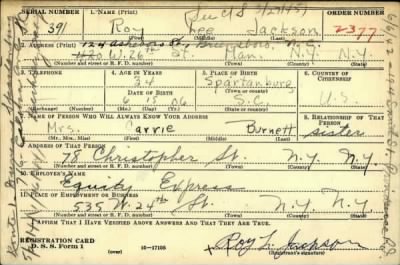 SERIAL NUMBER 1. NAME (Print) ORDER NUMBER
391 Roy Lee Jackson 2377
(First) (Middle) (Last)
2. ADDRESS (Print)
124 Greensboro, N.C.
W. 26 St. Man. N.Y. N.Y.
(Number and street or R. F. D. number) (Town) (County) (State)
3. TELEPHONE 4. AGE IN YEARS 5. PLACE OF BIRTH 6. COUNTRY OF CITIZENSHIP
34 Spartanburg
DATE OF BIRTH (Town or county)
6 15 06 S.C. U.S.
(Exchange) (Number) (Mo.) (Day) (Yr.) (State or country)
7. NAME OF PERSON WHO WILL ALWAYS KNOW YOUR ADDRESS 8. RELATIONSHIP OF THAT PERSON
Mrs. Carrie Burnett sister
(Mr., Mrs., Miss) (First) (Middle) (Last)
9. ADDRESS OF THAT PERSON
78 Christopher St. N.Y. N.Y.
(Number and street or R. F. D. number) (Town) (County) (State)
10. EMPLOYER'S NAME
Equity Express
11. PLACE OF EMPLOYMENT OR BUSINESS
535 W. 24th St. N.Y. N.Y.
(Number and street or R. F. D. number) (Town) (County) (State)
I AFFIRM THAT I HAVE VERIFIED ABOVE ANSWERS AND THAT THEY ARE TRUE.
REGISTRATION CARD
D. S. S. Form 1 16-17105 Roy L. Jackson
(over) (Registrant's signature)